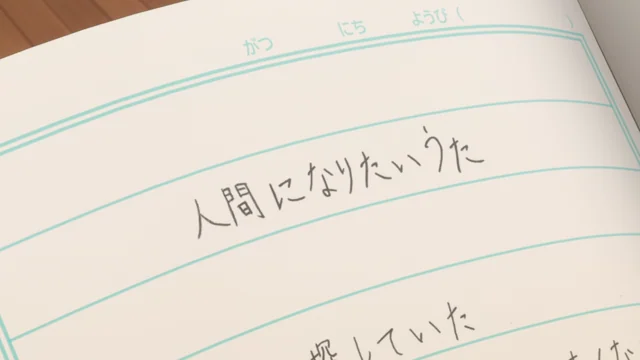 がつ にち ようび (  )
人間になりたいうた
探していた